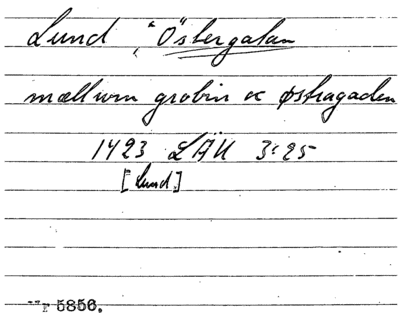 Lund, "Östergatan
mællwm grobin oc østragaden
1423 LÄU 3:25
[Lund]
5856.